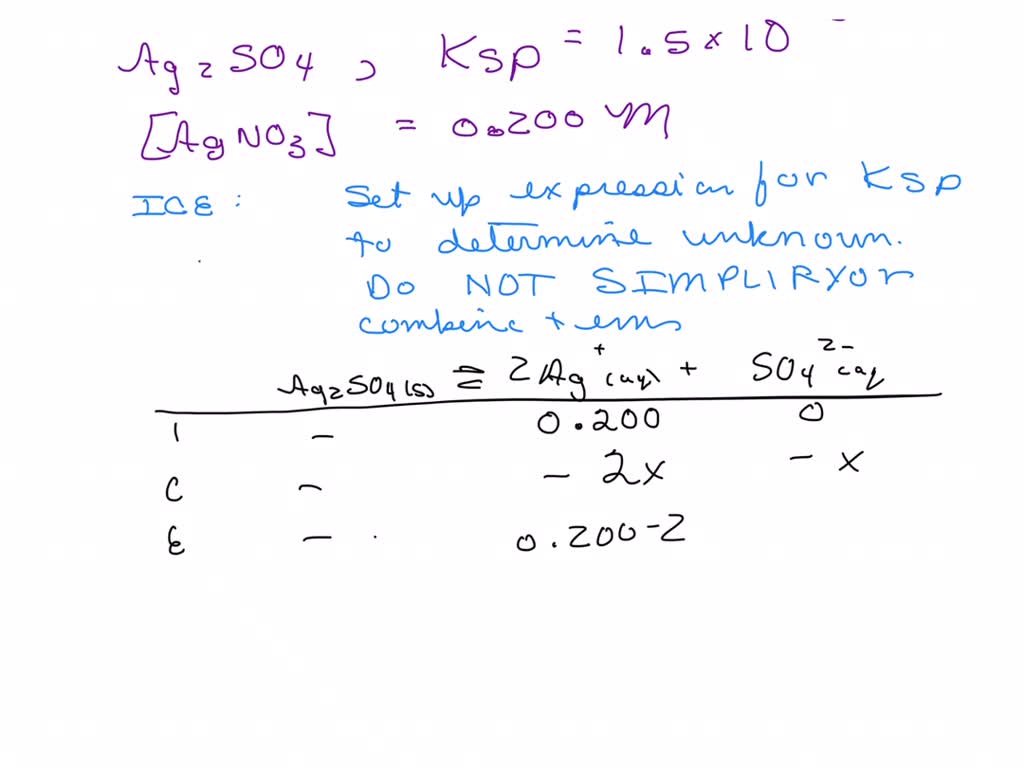 Ag2SO4, Ksp = 1.5 × 10⁻
[AgNO3] = 0.200 M
ICE: Set up expression for Ksp
to determine unknown.
Do NOT SIMPLIRYor
combine terms
Ag2SO4(s) ⇌ 2Ag⁺(aq) + SO4²⁻(aq
I – 0.200 0
C – – 2x – x
E – 0.200-2